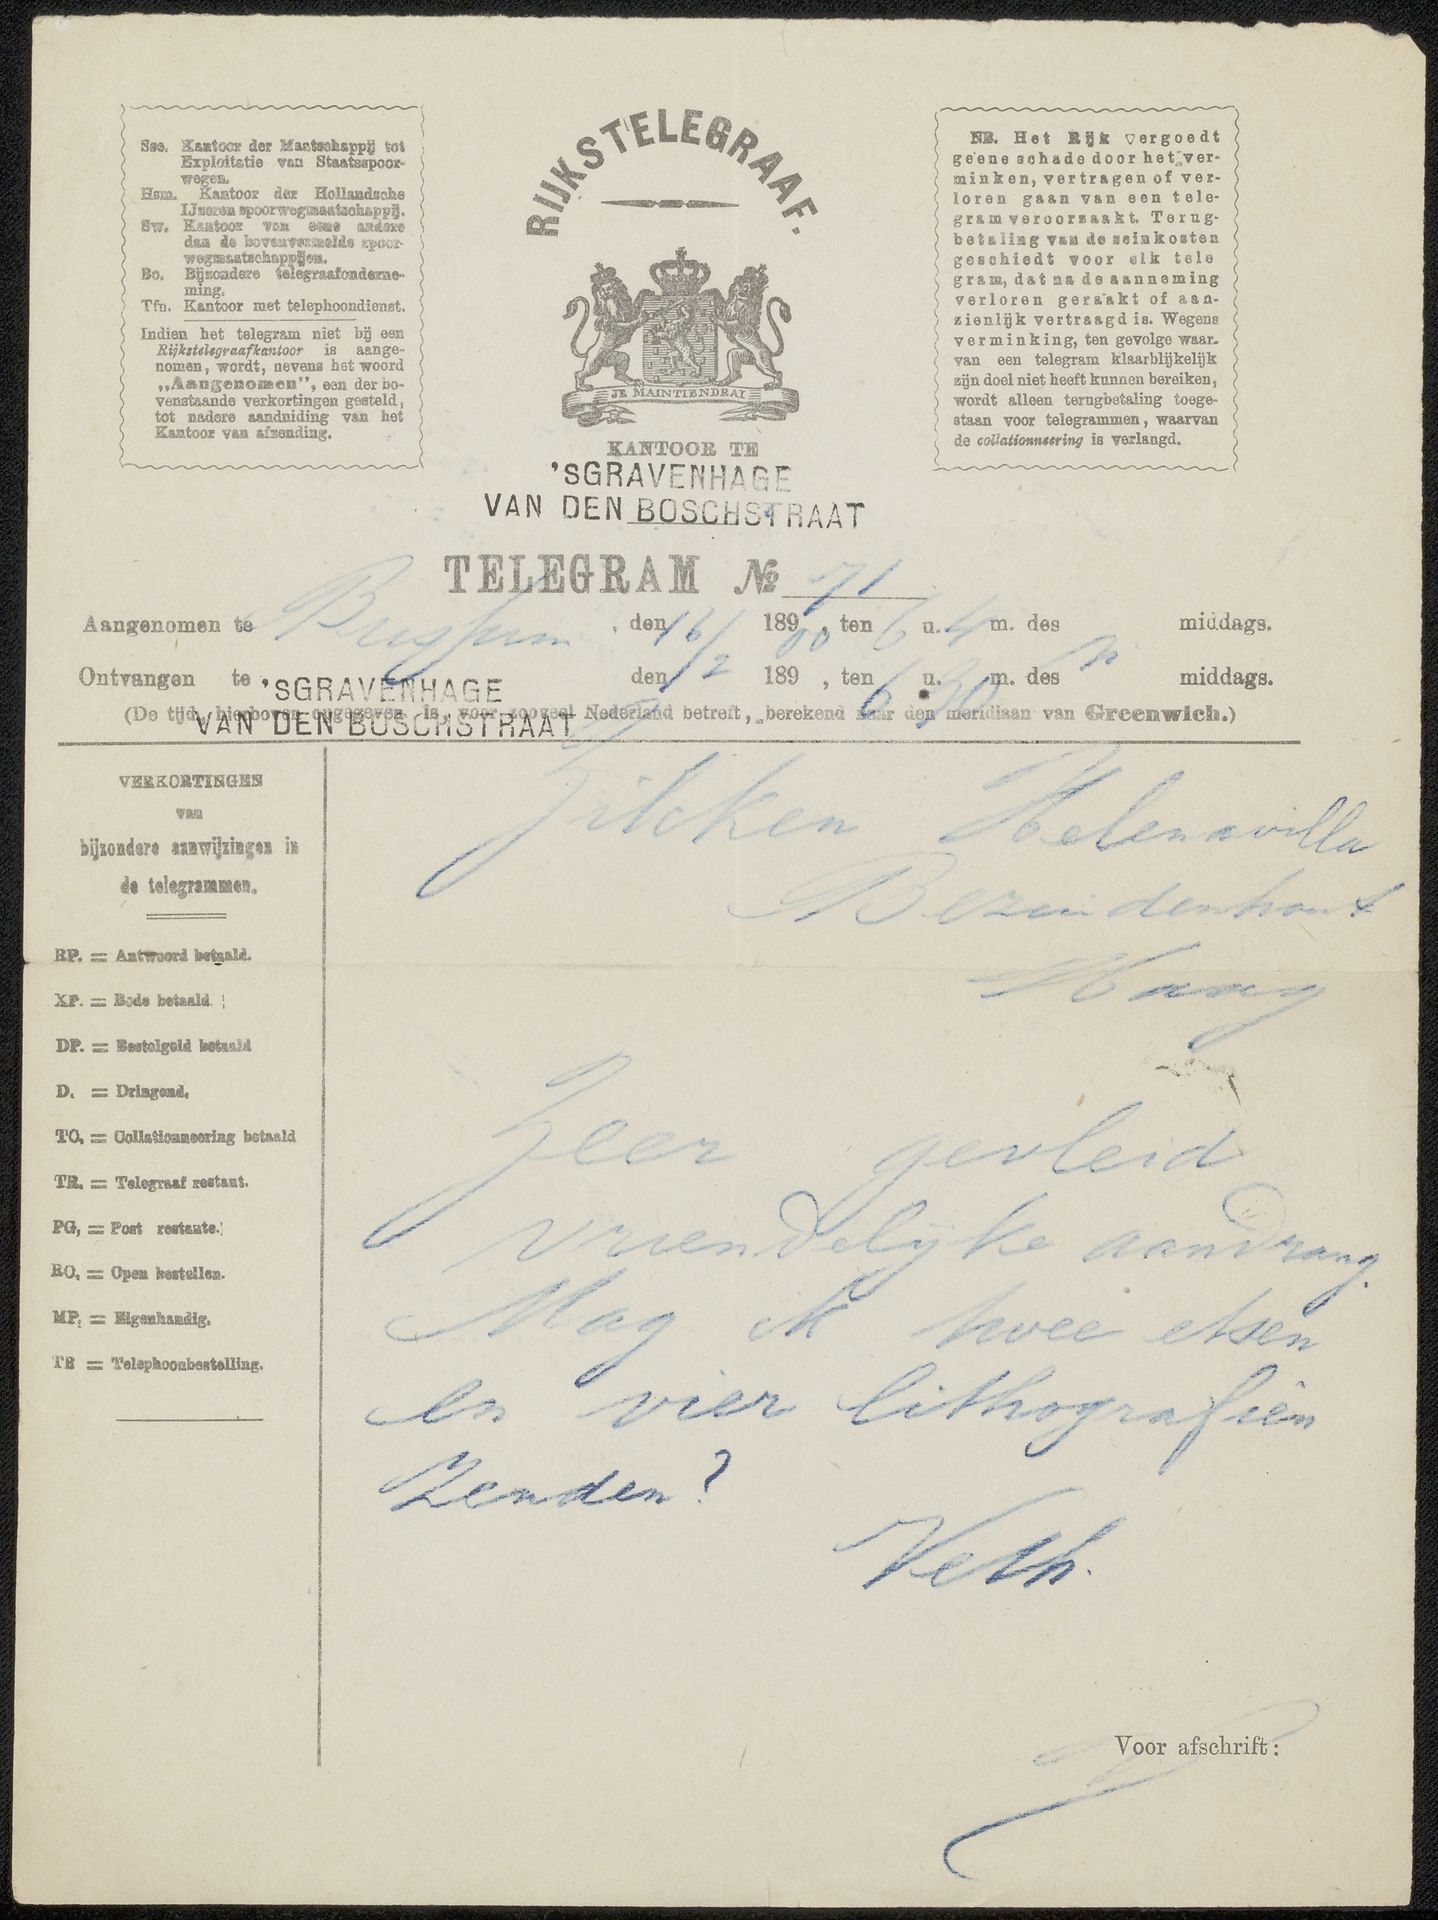 Sse. Kantoor der Maatschappij tot
Exploitatie van Staatsspoor-
wegen.
Hsm. Kantoor der Hollandsche
IJzeren spoorwegmaatschappij.
Sw. Kantoor van eene andere
dan de bovenvermelde spoor-
wegmaatschappijen.
Bo. Bijzondere telegraafonderne-
ming.
Tfn. Kantoor met telephoondienst.
Indien het telegram niet bij een
Rijkstelegraafkantoor is aange-
nomen, wordt, nevens het woord
„Aangenomen”, een der bo-
venstaande verkortingen gesteld,
tot nadere aanduiding van het
Kantoor van afzending.
RIJKSTELEGRAAF.
JE MAINTIENDRAI
KANTOOR TE
'SGRAVENHAGE
VAN DEN BOSCHSTRAAT
NB. Het Rijk vergoedt
geene schade door het ver-
minken, vertragen of ver-
loren gaan van een tele-
gram veroorzaakt. Terug-
betaling van de seinkosten
geschiedt voor elk tele
gram, dat na de aanneming
verloren geraakt of aan-
zienlijk vertraagd is. Wegens
verminking, ten gevolge waar-
van een telegram klaarblijkelijk
zijn doel niet heeft kunnen bereiken,
wordt alleen terugbetaling toege-
staan voor telegrammen, waarvan
de collationneering is verlangd.
TELEGRAM No 71
Aangenomen te Bussum , den 16/2 189 00 , ten 6 u. 4 m. des middags.
Ontvangen te 'SGRAVENHAGE den 189 , ten 6 u. 30 m. des n middags.
VAN DEN BOSCHSTRAAT
(De tijd, hierboven opgegeven, is, voor zooveel Nederland betreft, berekend naar den meridiaan van Greenwich.)
VERKORTINGEN
van
bijzondere aanwijzingen in
de telegrammen.
RP. = Antwoord betaald.
XP. = Bode betaald
DP. = Bestelgeld betaald
D. = Dringend.
TC. = Collationneering betaald
TR. = Telegraaf restant.
PG. = Post restante.
RO. = Open bestellen.
MP. = Eigenhandig.
TB = Telephoonbestelling.
Zilcken Helenavilla
Bezuidenhout
Haag
Zeer gevleid
vriendelijke aandrang.
Mag ik twee etsen
en vier lithografiën
zenden?
Veth.
Voor afschrift: